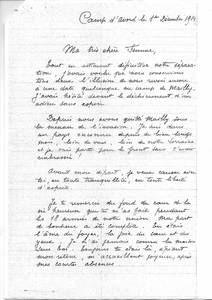 Camp d'avord le 1er Décembre 191
Ma très chère Femme,
tout en estimant définitive notre sépara
tion, j'avais voulu que nous conservions
tous deux l'illusion de nous revoir encore
à une date quelconque au camp de Mailly.
J'avais hésité devant le déchirement d'un
adieu sans espoir.
Depuis nous avons quitté Mailly sous
la menace de l'invasion. Je suis dans
un pays inconnu depuis
moi, loin de vous, loin de notre Lorraine
et je vais partir pour le front sans t'avoir
embrassée!
Avant mon départ, je veux causer avec
toi, en toute tranquillité, en toute liberté
d'esprit.
Je te remercie du fond du cœur de la
vie heureuse que tu as fait pendant
les 18 années de notre union. Mon part
de bonheur a été complète. Tu étais
l'âme du foyer, la joie du cœur et des
yeux. Je n'ai jamais connu la maison
sans toi. Toujours tu étais là, avant
mon retour, m'accueillant joyeuse, après
mes courtes absences.